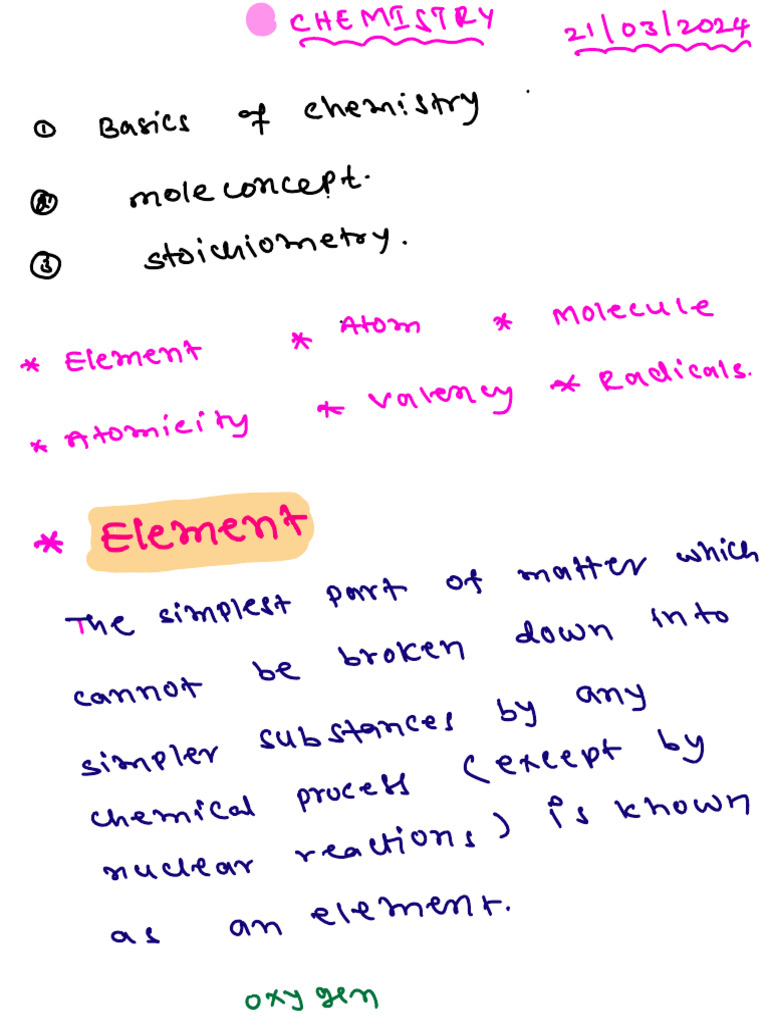 CHEMISTRY 21/03/2024
① Basics of chemistry
② mole concept.
③ stoichiometry.
* Element * Atom * Molecule
* Atomicity * Valency * Radicals.
* Element
The simplest part of matter which
cannot be broken down into
simpler substances by any
chemical process (except by
nuclear reactions) is known
as an element.
oxygen